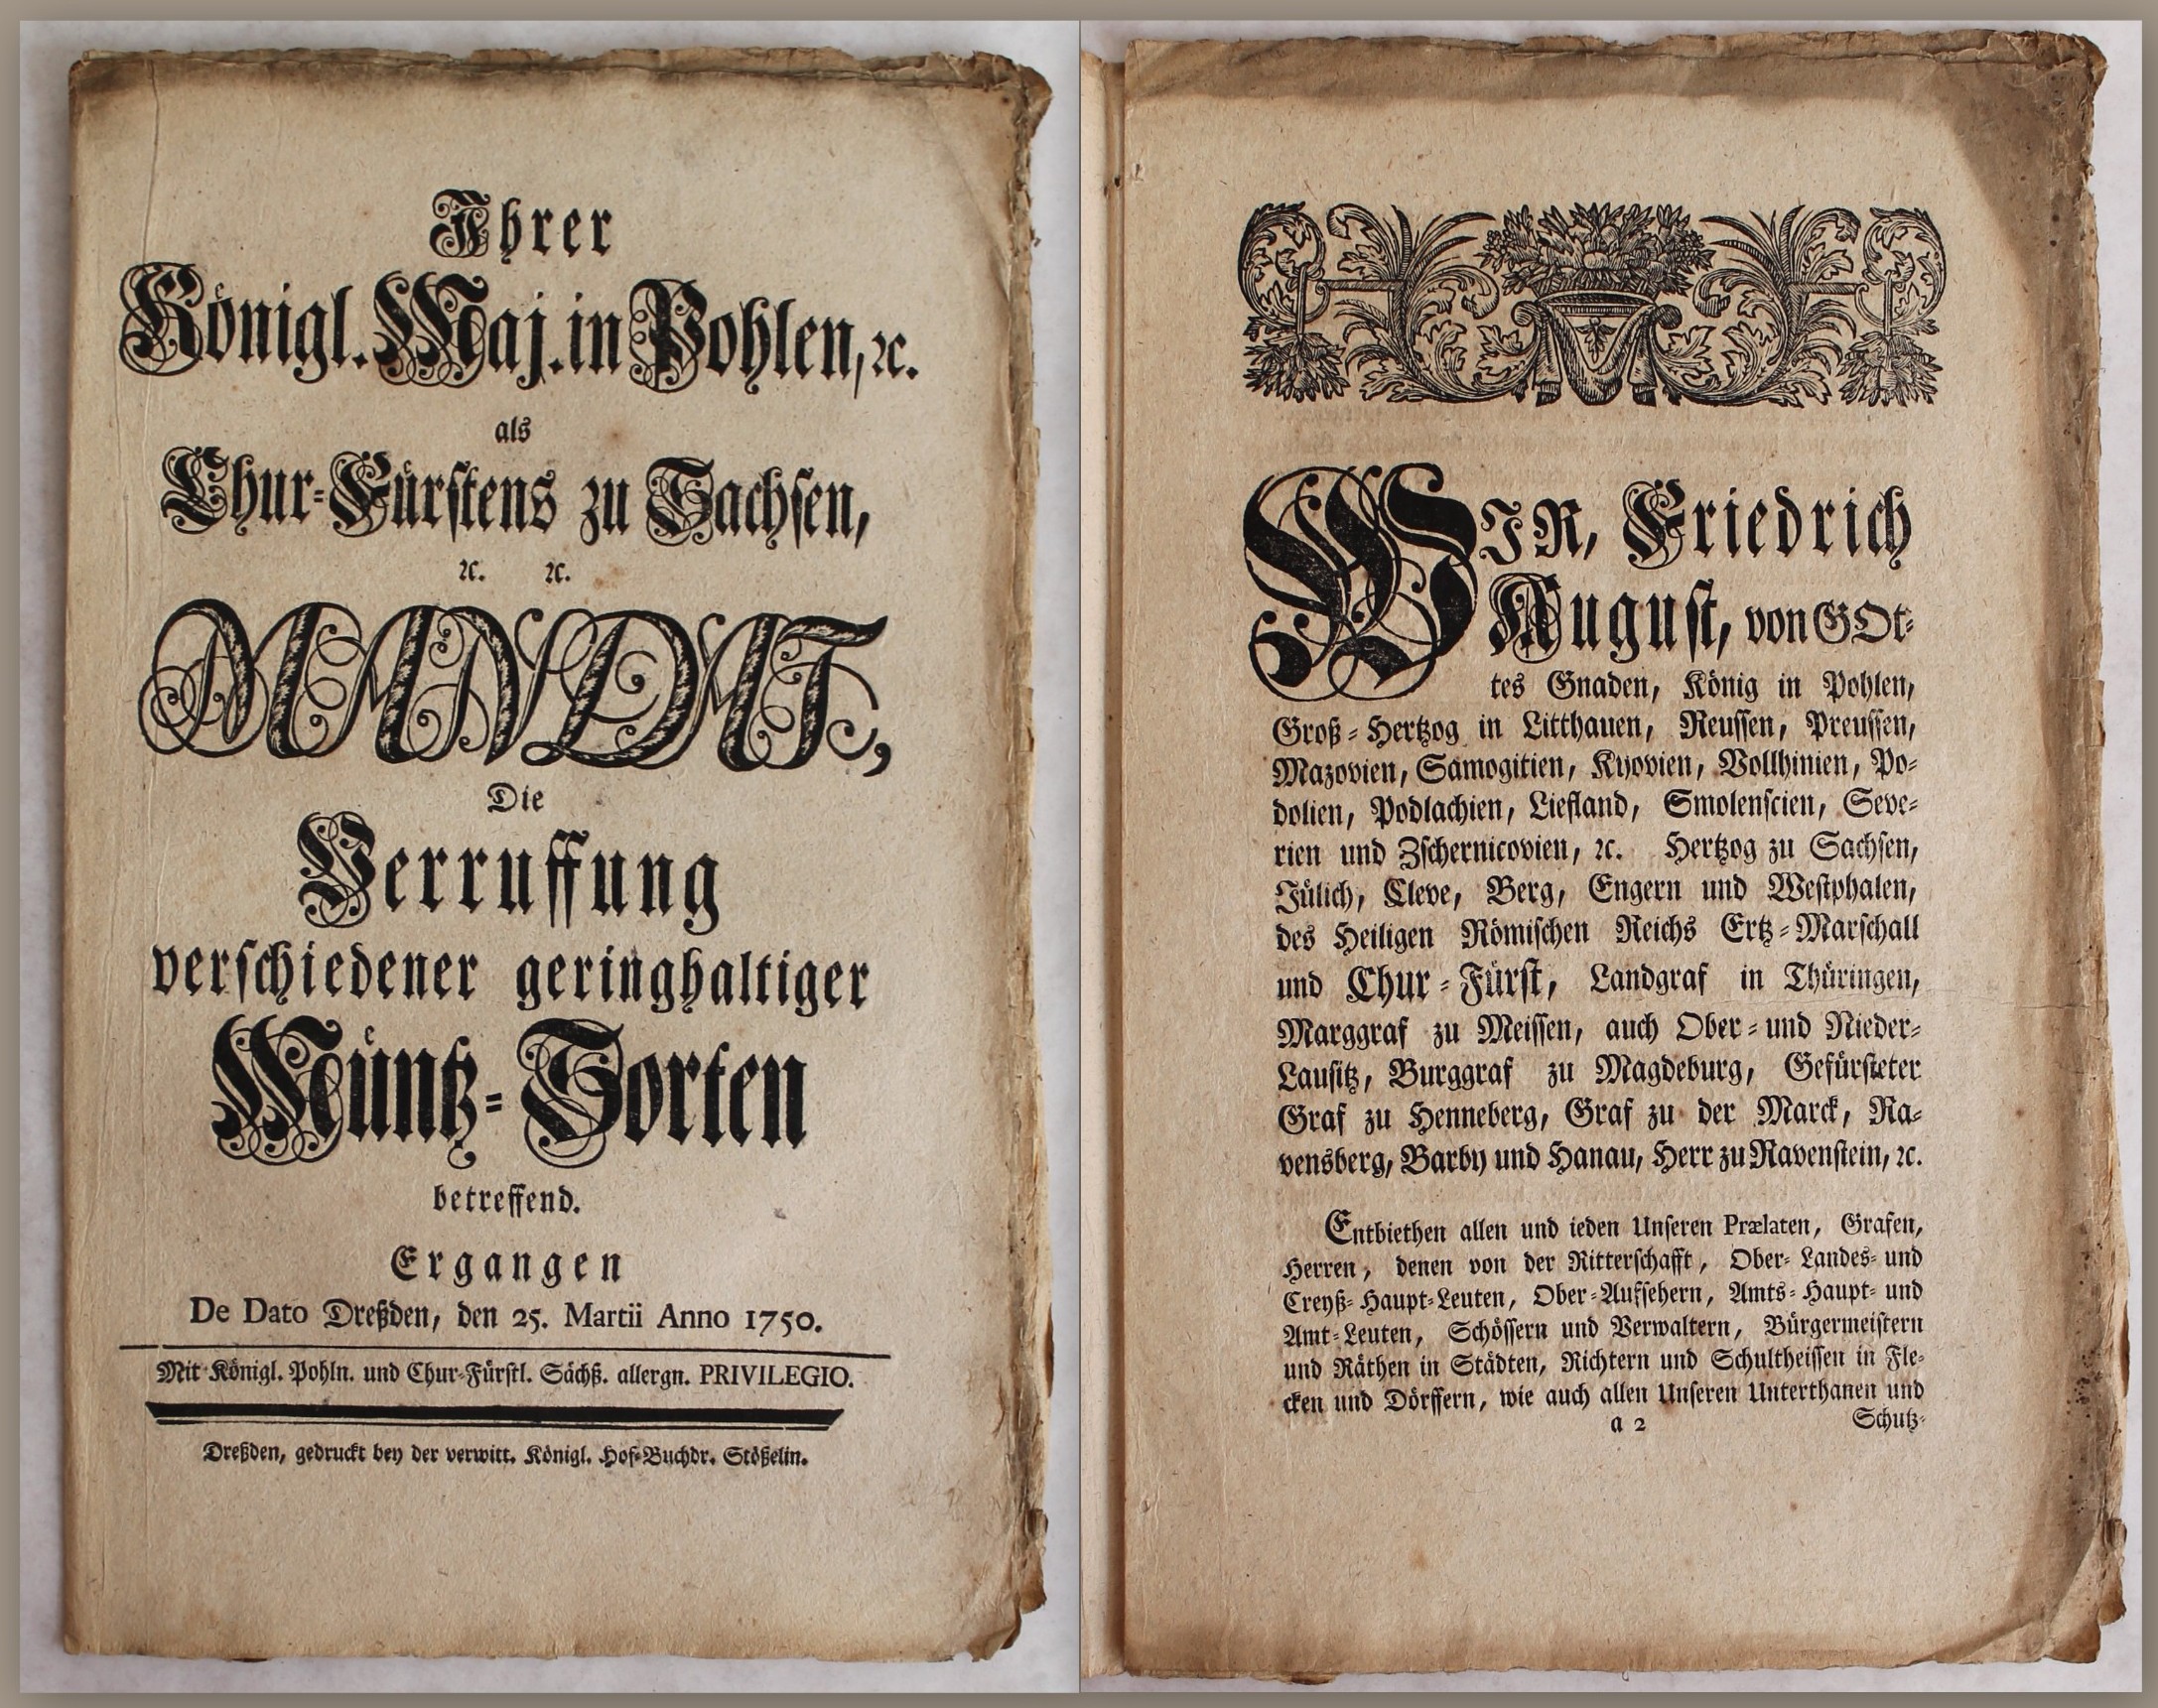 Ihrer
Königl. Maj. in Pohlen, ꝛc.
als
Chur-Fürstens zu Sachsen,
ꝛc. ꝛc.
MANDAT,
Die
Verruffung
verschiedener geringhaltiger
Müntz-Sorten
betreffend.
Ergangen
De Dato Dreßden, den 25. Martii Anno 1750.
Mit Königl. Pohln. und Chur-Fürstl. Sächß. allergn. PRIVILEGIO.
Dreßden, gedruckt bey der verwitt. Königl. Hof-Buchdr. Stößelin.
WIR, Friedrich
August, von GOt-
tes Gnaden, König in Pohlen,
Groß-Hertzog in Litthauen, Reussen, Preussen,
Mazovien, Samogitien, Kyovien, Vollhinien, Po-
dolien, Podlachien, Liefland, Smolenscien, Seve-
rien und Zschernicovien, ꝛc. Hertzog zu Sachsen,
Jülich, Cleve, Berg, Engern und Westphalen,
des Heiligen Römischen Reichs Ertz-Marschall
und Chur-Fürst, Landgraf in Thüringen,
Marggraf zu Meissen, auch Ober- und Nieder-
Lausitz, Burggraf zu Magdeburg, Gefürsteter
Graf zu Henneberg, Graf zu der Marck, Ra-
vensberg, Barby und Hanau, Herr zu Ravenstein, ꝛc.
Entbiethen allen und ieden Unseren Prælaten, Grafen,
Herren, denen von der Ritterschafft, Ober-Landes- und
Creyß-Haupt-Leuten, Ober-Aufsehern, Amts-Haupt- und
Amt-Leuten, Schössern und Verwaltern, Bürgermeistern
und Räthen in Städten, Richtern und Schultheissen in Fle-
cken und Dörffern, wie auch allen Unseren Unterthanen und
a 2 Schutz-